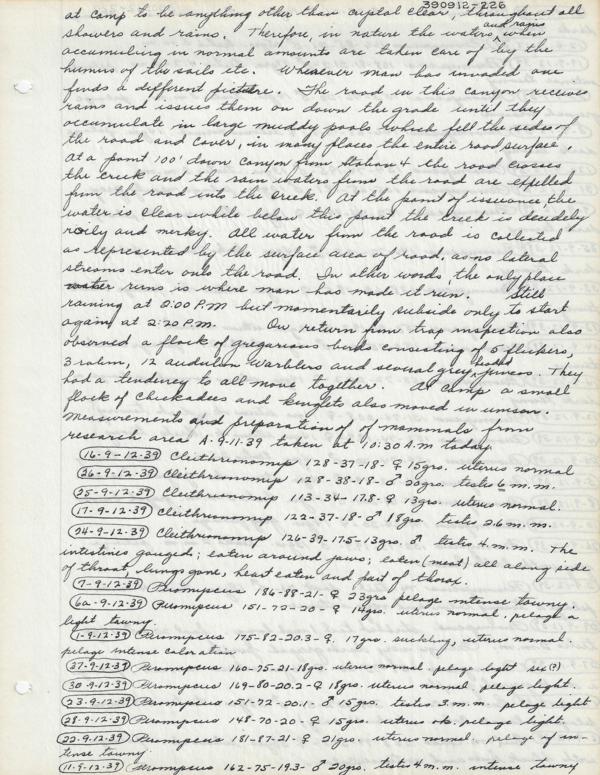 390912-226
at camp to be anything other than crystal clear, throughout all
showers and rains. Therefore, in nature the waters and rains when
accumuling in normal amounts are taken care of by the
humus of the soils etc. Whenever man has invaded one
finds a different picture. The road in this canyon receives
rains and issues them on down the grade until they
accumulate in large muddy pools which fill the sides of
the road and cover, in many places the entire road surface.
At a point 100' down canyon from Station 4 the road crosses
the creek and the rain waters from the road are expelled
from the road into the creek. At the point of issuance, the
water is clear while below this point the creek is decidely
roily and merky. All water from the road is collected
as represented by the surface area of road, as no lateral
streams enter onto the road. In other words, the only place
water runs is where man has made it run. Still
raining at 2:00 P.M but momentarily subside only to start
again at 2:20 P.M. On return from trap inspection also
observed a flock of gregarious birds consisting of 5 flickers,
3 robin, 12 audubon warblers and several grey headed juncos. They
had a tendency to all move together. At camp a small
flock of chickadees and kinglets also moved in unison.
Measurements and preparation of of mammals from
research area A-9-11-39 taken at 10:30 A.M today
(16-9-12-39) Cleithrionomys 128-37-18- ♀ 15grs. uterus normal
(26-9-12-39) Cleithrionomys 128-38-18- ♂ 20grs. testes 6 m.m.
(25-9-12-39) Cleithrionomys 113-34-17.8- ♀ 13grs. uterus normal.
(17-9-12-39) Cleithrionomys 122-37-18- ♂ 18grs. testes 2.6 m.m.
(24-9-12-39) Cleithrionomys 126-39-17.5-13grs. ♂ testes 4 m.m. The
intestines gouged; eaten around jaws; eaten (meat) all along side
of throat, lungs gone, heart eaten and part of thorax.
(7-9-12-39) Peromyscus 186-88-21- ♀ 23grs pelage intense tawny.
(6a-9-12-39) Peromyscus 151-72-20- ♀ 14grs. uterus normal, pelage a
light tawny.
(1-9-12-39) Peromyscus 175-82-20.3- ♀. 17grs. suckling, uterus normal.
pelage intense coloration
(27-9-12-39) Peromyscus 160-75-21-18grs. uterus normal. pelage light sex(?)
(30-9-12-39) Peromyscus 169-80-20.2- ♀ 18grs. uterus normal, pelage light.
(23-9-12-39) Peromyscus 151-72-20.1- ♂ 15grs. testes 3.m.m. pelage light
(28-9-12-39) Peromyscus 148-70-20- ♀ 15grs. uterus ok. pelage light.
(22-9-12-39) Peromyscus 181-87-21- ♀ 21grs. uterus normal. pelage of in-
tense tawny.
(11-9-12-39) Peromyscus 162-75-19.3- ♂ 20grs. testes 4 m.m. intense tawny